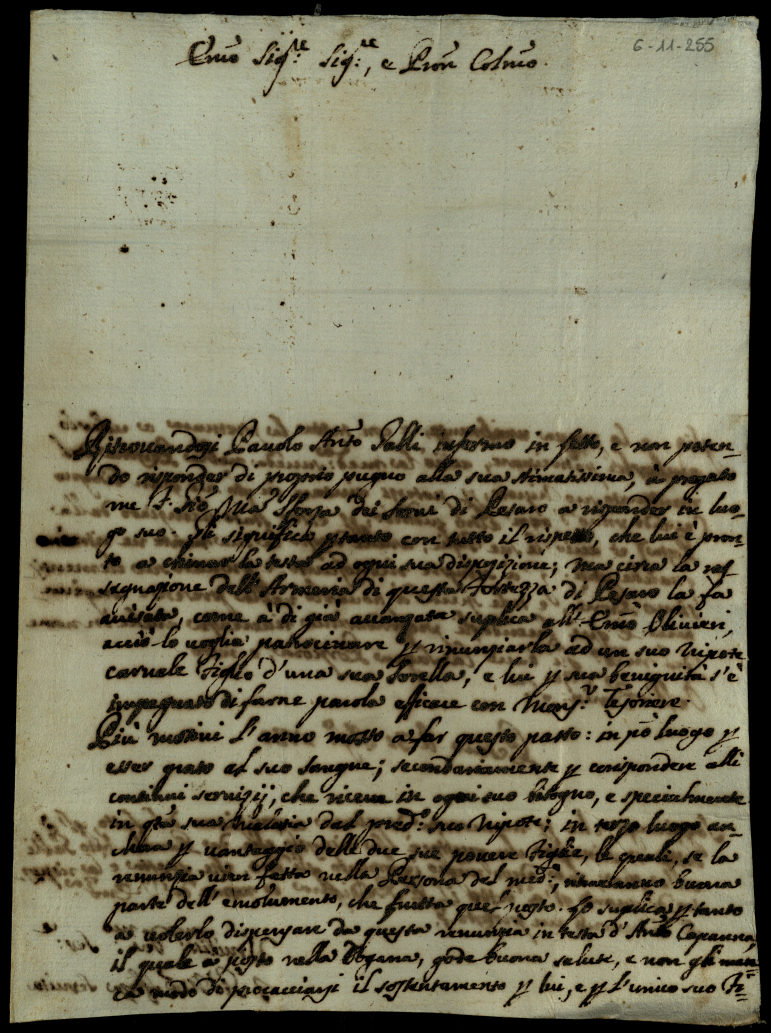 6-11-255
Emõ Sigre: Sigre:, e Pron Colmo.
Ritrovandosi Pavolo Anto Galli infermo in letto, e non poten-
do risponder di proprio pugno alla sua stimatissima, à pregato
me F. Gio Ma Sforza dei Servi di Pesaro a risponder in luo-
go suo. Gli significo ptanto con tutto il rispetto, che lui è pron-
to a chinar la testa ad ogni sua disposizione; ma circa la ras-
segnazione dell'Armeria di questa Fortezza di Pesaro la fa
avisato, come à di già avanzata suplica all'Emõ Olivieri,
acciò lo voglia patrocinare p rinunziarla ad un suo Nipote
carnale figlio d'una sua sorella, e lui p sua benignità s'è
impegnato di farne parola efficace con Monsr: Tesoriere.
Più motivi l'anno mosso a far questo passo: in põ luogo p
esser grato al suo sangue; secondariamente p corispondere alli
continui servizij, che riceve in ogni suo bisogno, e specialmente
in qta sua malatia dal predo: suo Nipote; in terzo luogo an-
chora p vantaggio delle due sue povere figlie, le quali, se la
renunzia vien fatta nella Persona del med:, ritraeranno buona
parte dell'emolumento, che frutta quel posto. Lo suplica ptanto
a volerlo dispensare da questa renunzia in testa d'Anto Capanna,
il quale à posto nella Dogana, gode buona salute, e non gli man-
ca modo di procacciarsi il sostentamento p lui, e p l'unico suo Fi-